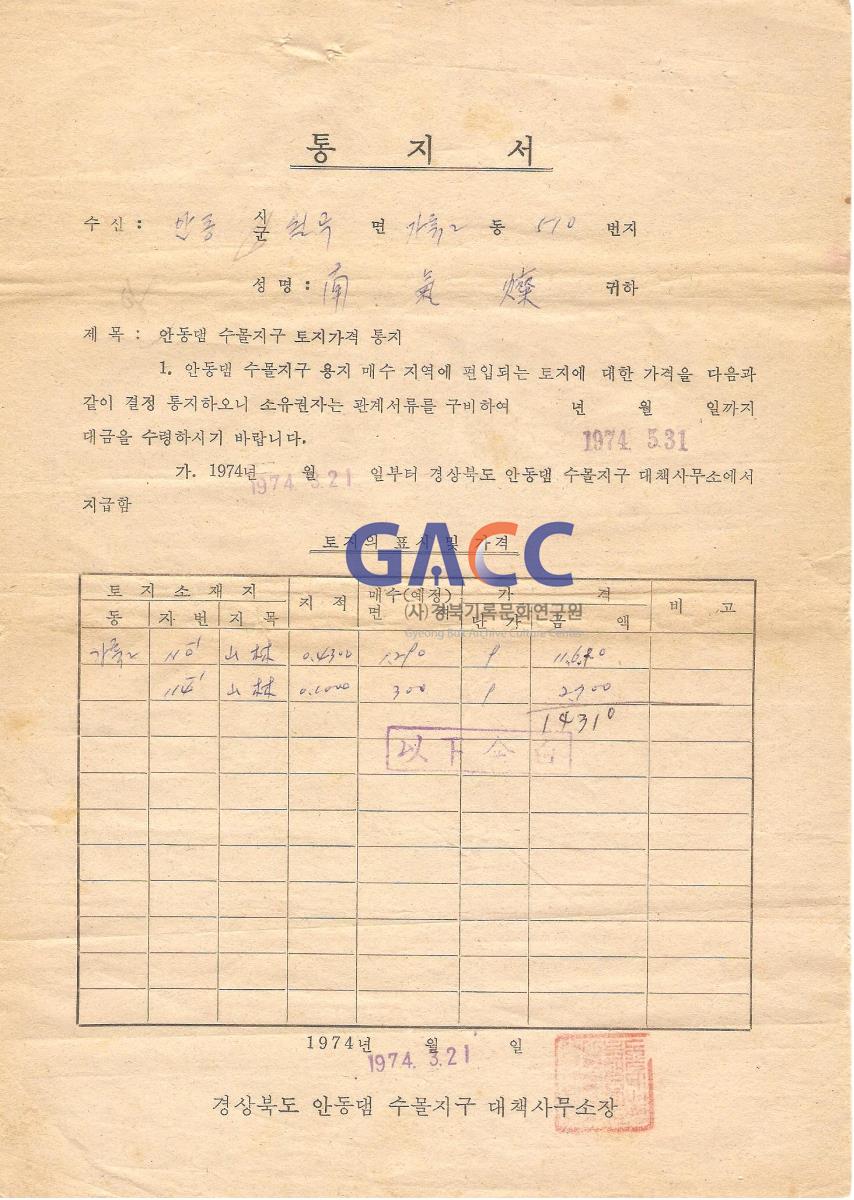 통 지 서
수 신 : 안동 시 군 월곡 면 가류2 동 510 번지
성 명 : 南 氣 燦 귀하
제 목 : 안동댐 수몰지구 토지가격 통지
1. 안동댐 수몰지구 용지 매수 지역에 편입되는 토지에 대한 가격을 다음과
같이 결정 통지하오니 소유권자는 관계서류를 구비하여 년 월 일까지
1974. 5.31
대금을 수령하시기 바랍니다.
가. 1974년 월 일부터 경상북도 안동댐 수몰지구 대책사무소에서
1974 3.21
지급함
GACC
토지의 표시 및 가격
(사)경북기록문화연구원
Gyeong Buk Archive Culture Center
토 지 소 재 지 지 적 매수(예정) 면 적 가 격 비 고
동 지 번 지 목 단 가 금 액
山林 0.4300 1,290 9
山林 0.1000 300 9
14310
以下
1974년 월 일
1974. 3.21
경상북도 안동댐 수몰지구 대책사무소장